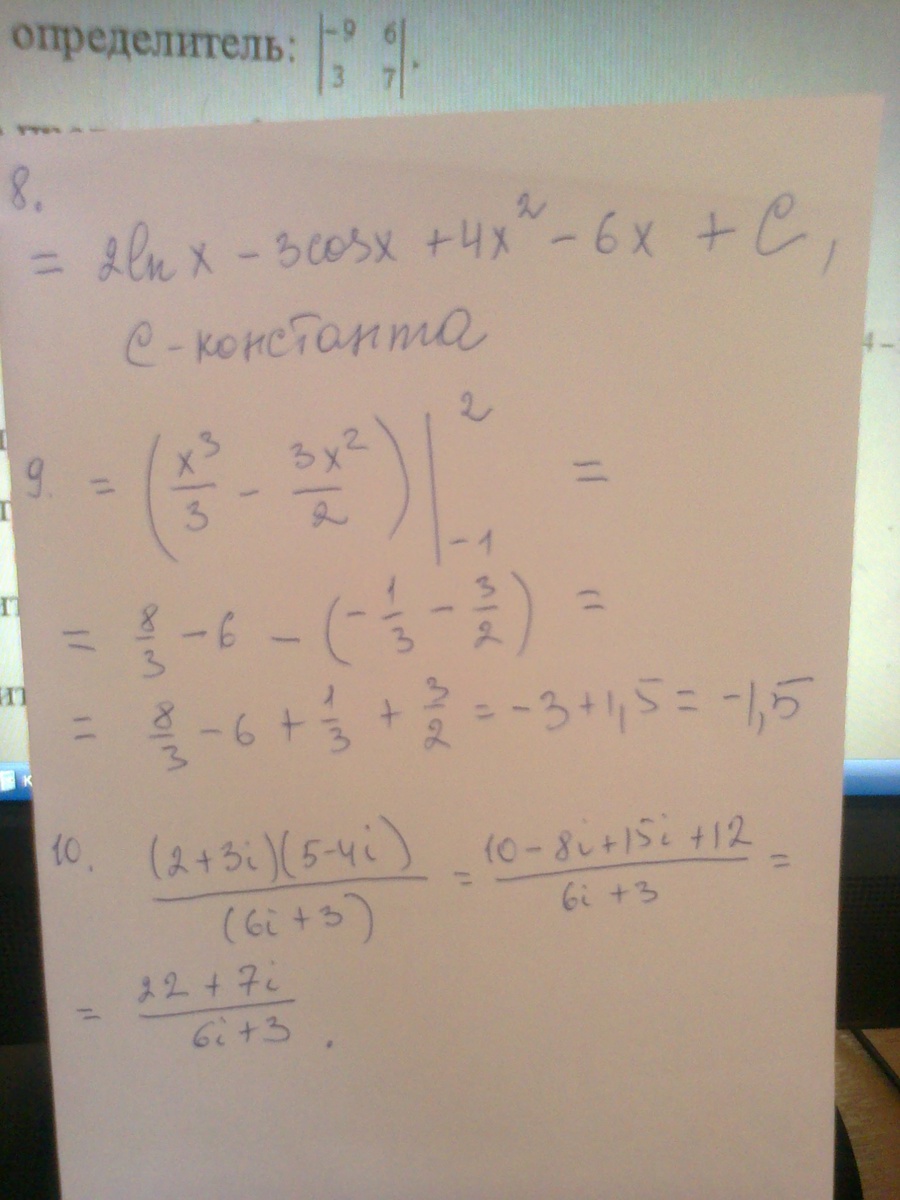 определитель: |-9 6|
|3 7|.
8.
= 2ln x - 3cosx + 4x² - 6x + C,
C - константа
9. = (x³/3 - 3x²/2) |₋₁² =
= 8/3 - 6 - (-1/3 - 3/2) =
= 8/3 - 6 + 1/3 + 3/2 = -3 + 1,5 = -1,5
10. (2+3i)(5-4i)/(6i+3) = 10-8i+15i+12/6i+3 =
= 22+7i/6i+3.